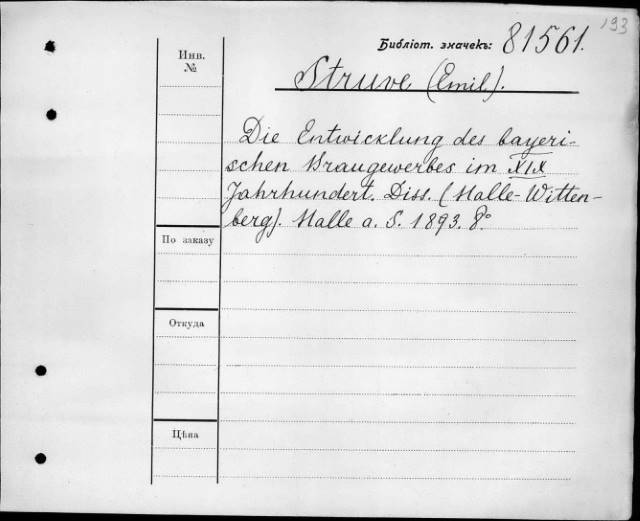 193
Библіот. значекъ: 81561.
Инв.
№
Struve (Emil).
Die Entwicklung des bayeri-
schen Braugewerbes im XIX
Jahrhundert. Diss. (Halle-Witten-
berg). Halle a. S. 1893. 8°
По заказу
Откуда
Цѣна